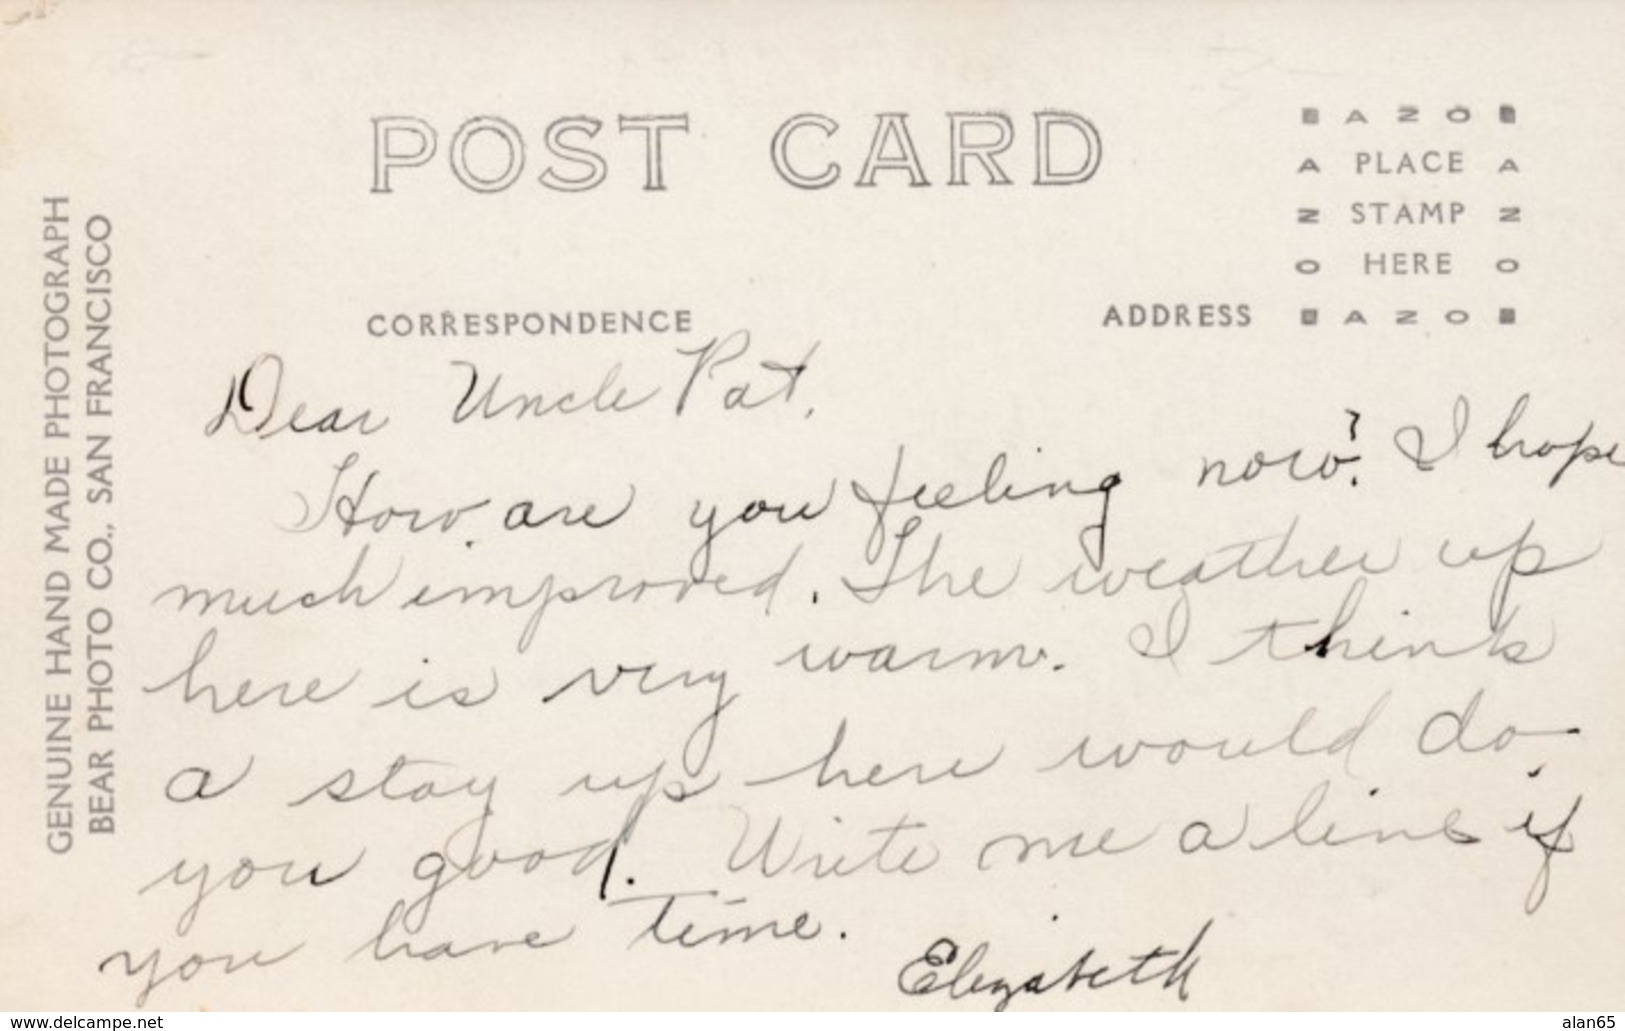 POST CARD
AZO
A PLACE A
Z STAMP Z
O HERE O
AZO
CORRESPONDENCE
ADDRESS
GENUINE HAND MADE PHOTOGRAPH
BEAR PHOTO CO., SAN FRANCISCO
Dear Uncle Pat,
How are you feeling now? I hope
much improved. The weather up
here is very warm. I think
a stay up here would do
you good. Write me a line if
you have time.
Elizabeth
www.delcampe.net
alan65